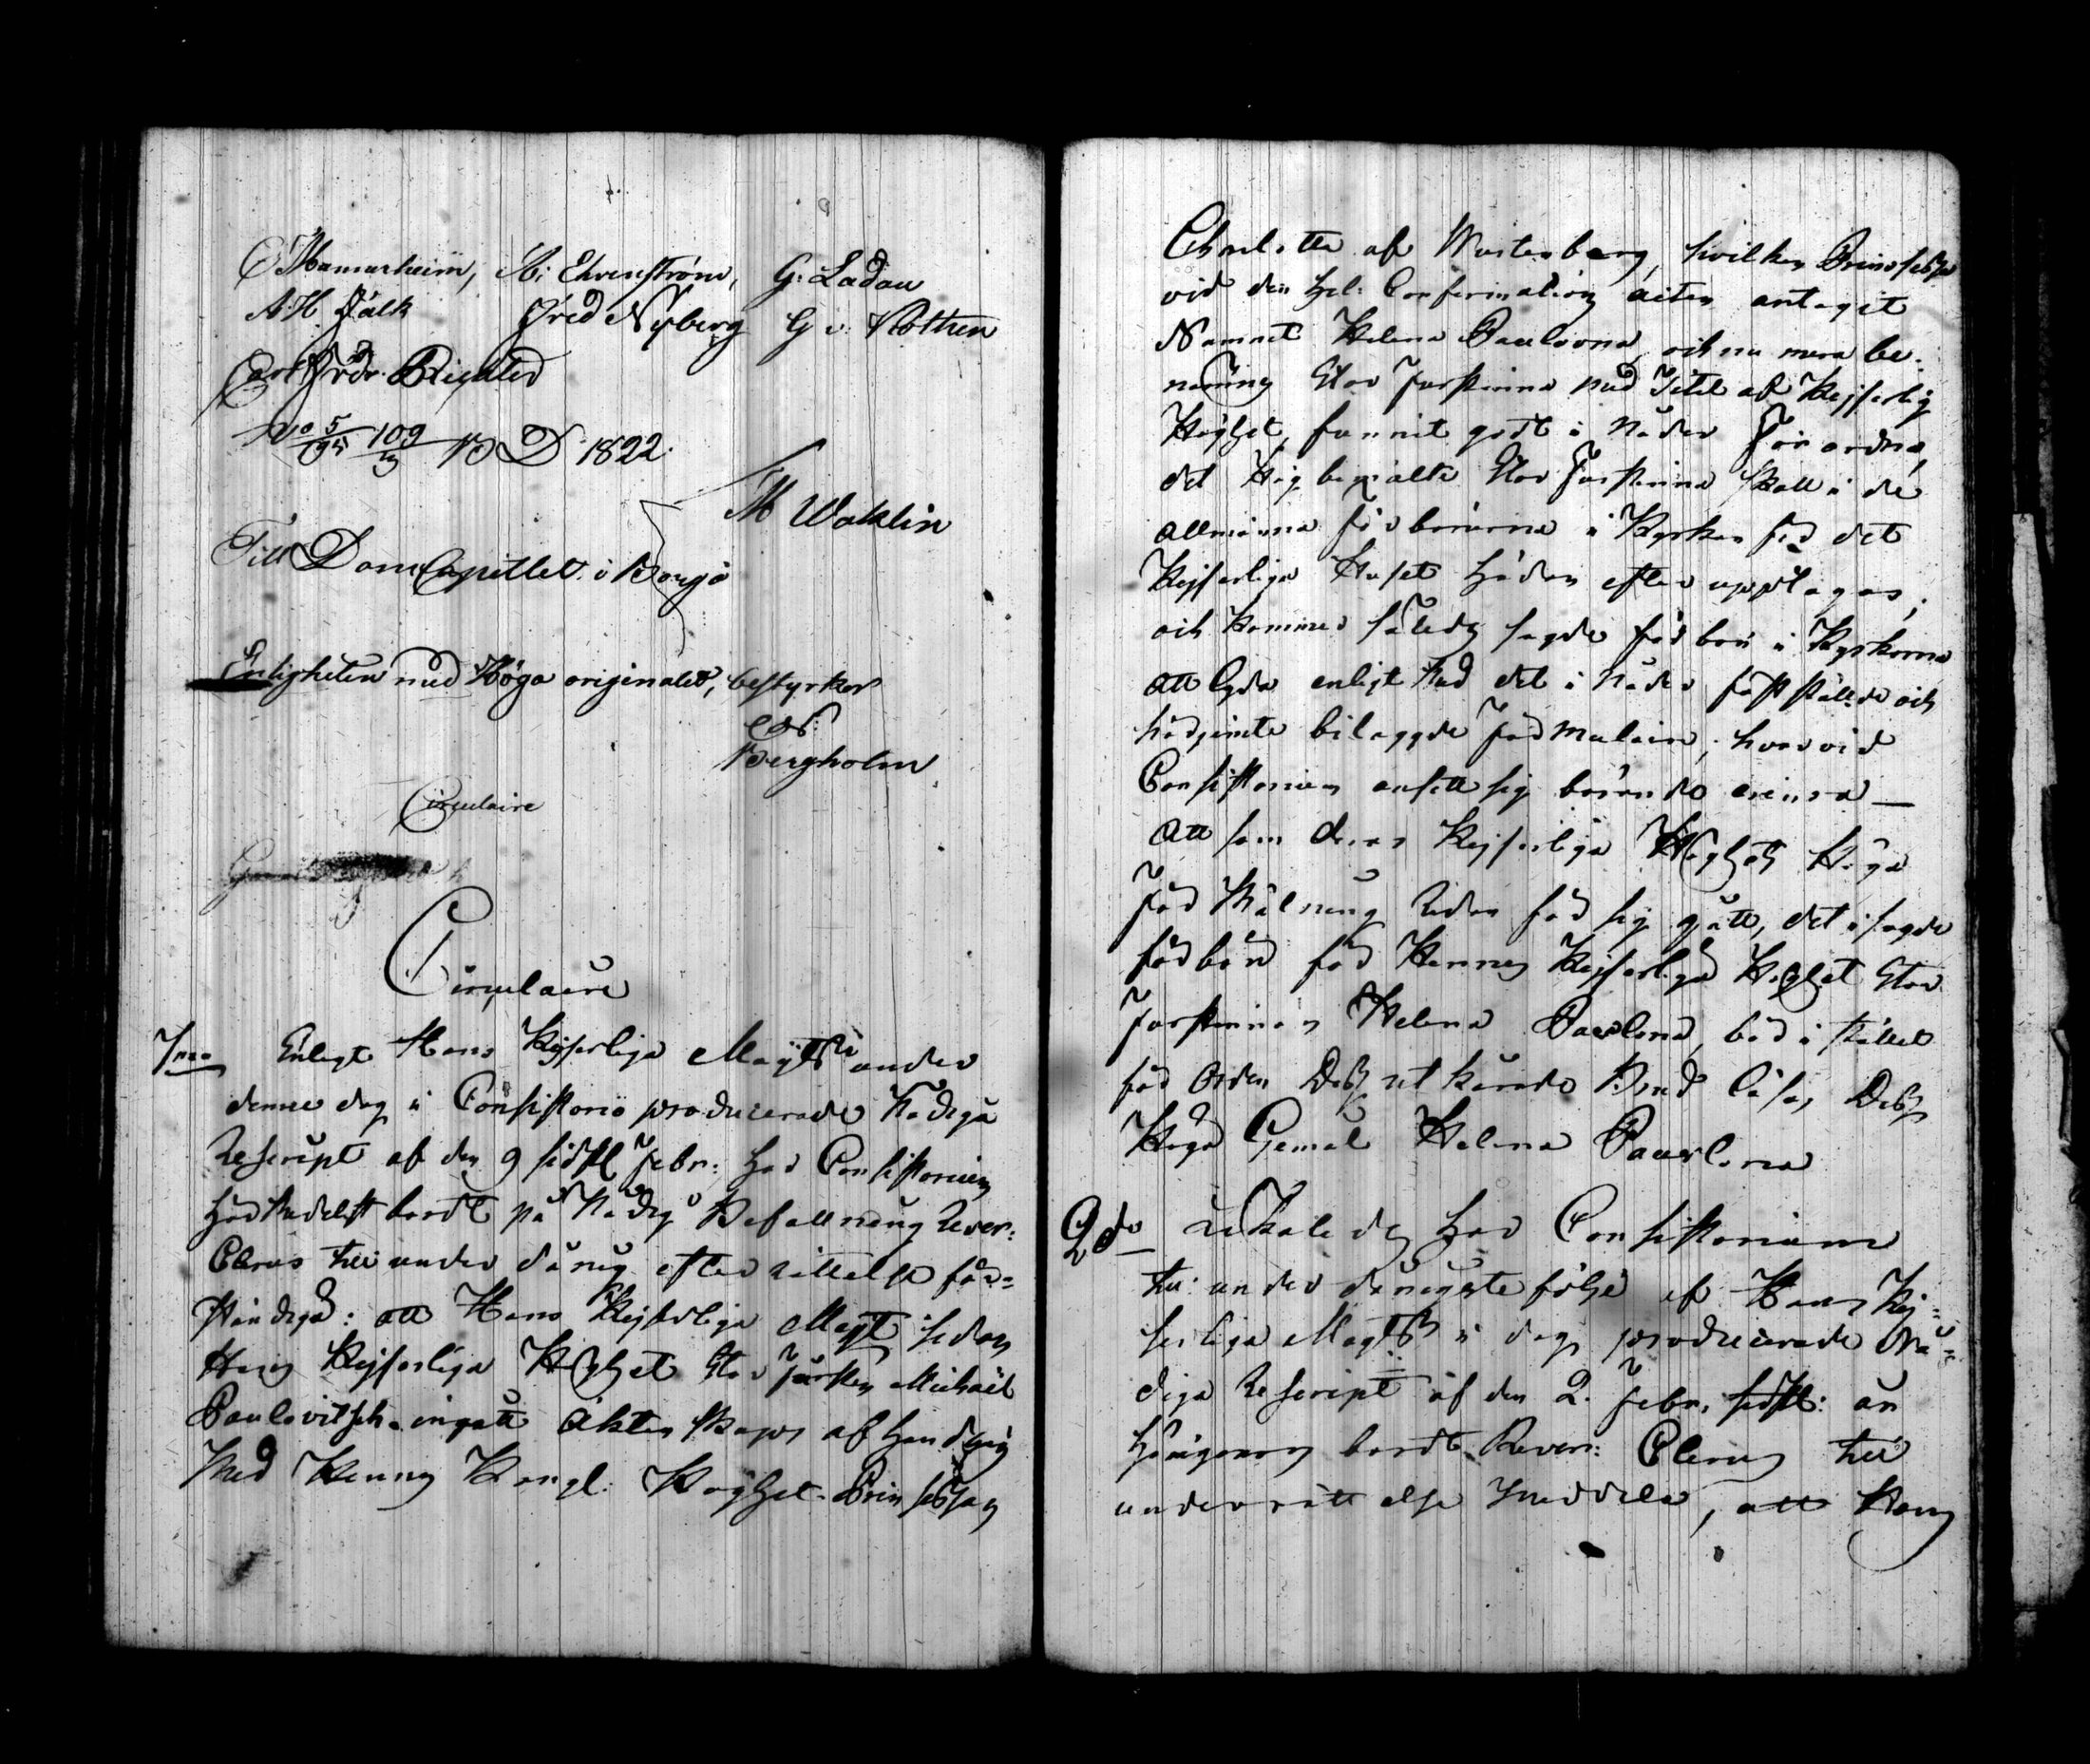 C Mannerheim, A: Ehrenström, G: Ladau
A: H Falk Fred Nyberg G v: Rothen
Carl Fredr. Richter
No 5/95 109/3 BD 1822.
M Waklin
Till Dom Capitlet i Borgå
Enligheten med Höga originalet, bestyrker
Bergholm
Circulaire
Circulaire
1mo Enligt Hans Kejserliga Majts under
denne dag i Consistorio producerade Nådiga
Rescript af den 9 sidstl Febr: har Consistorium
härmedelst bordt på Nådig Befallning Rever:
Clerus till underdånig efterrättelse för=
ständiga: att Hans Kejserliga Majt sedan
Hans Kejserliga Höghet Stor Fursten Michaël
Paulovitsch ingått Äktenskaps af handling
Med Hennes Kongl: Höghet Prinsessan
Charlotta af Wurtenberg, hvilken Prinsessa
vid den hel: Confirmations acten antagit
Namnet Helena Paulovna, och nu mera be=
nemning Stor Furstinna med Titel af Kejserlig
Höghet, funnit godt i Nåder Förordna,
det Högbemälte Stor Furstinna skall i de
allmänna förbönerna i Kyrkan för det
Kejserliga Huset hädanefter upptagas,
och kommer således sagde förbön i Kyrkorna
att lyda enligt med det i Nåder fastställde och
härjemte bilaggde Formulair; hvarvid
Consistorium ansett sig böra erinra —
Att som deras Kejserliga Höghets Höga
Förmälning redan för sig gått, det i sagde
förbön för Hennes Kejserliga Höghet Stor
Furstinnan Helena Pavlovna, bör i stället
för orden Dess utkårade Brud läsas Dess
Höga Gemål Helena Pavlovna
2do Likaledes har Consistorium
till underdånigste följe af Hans Kej=
serliga Majts i dag producerade Nå=
diga Rescript af den 2. Febr. sidstl: än
bordt Rever: Clerus till
underrättelse meddela, att Hans